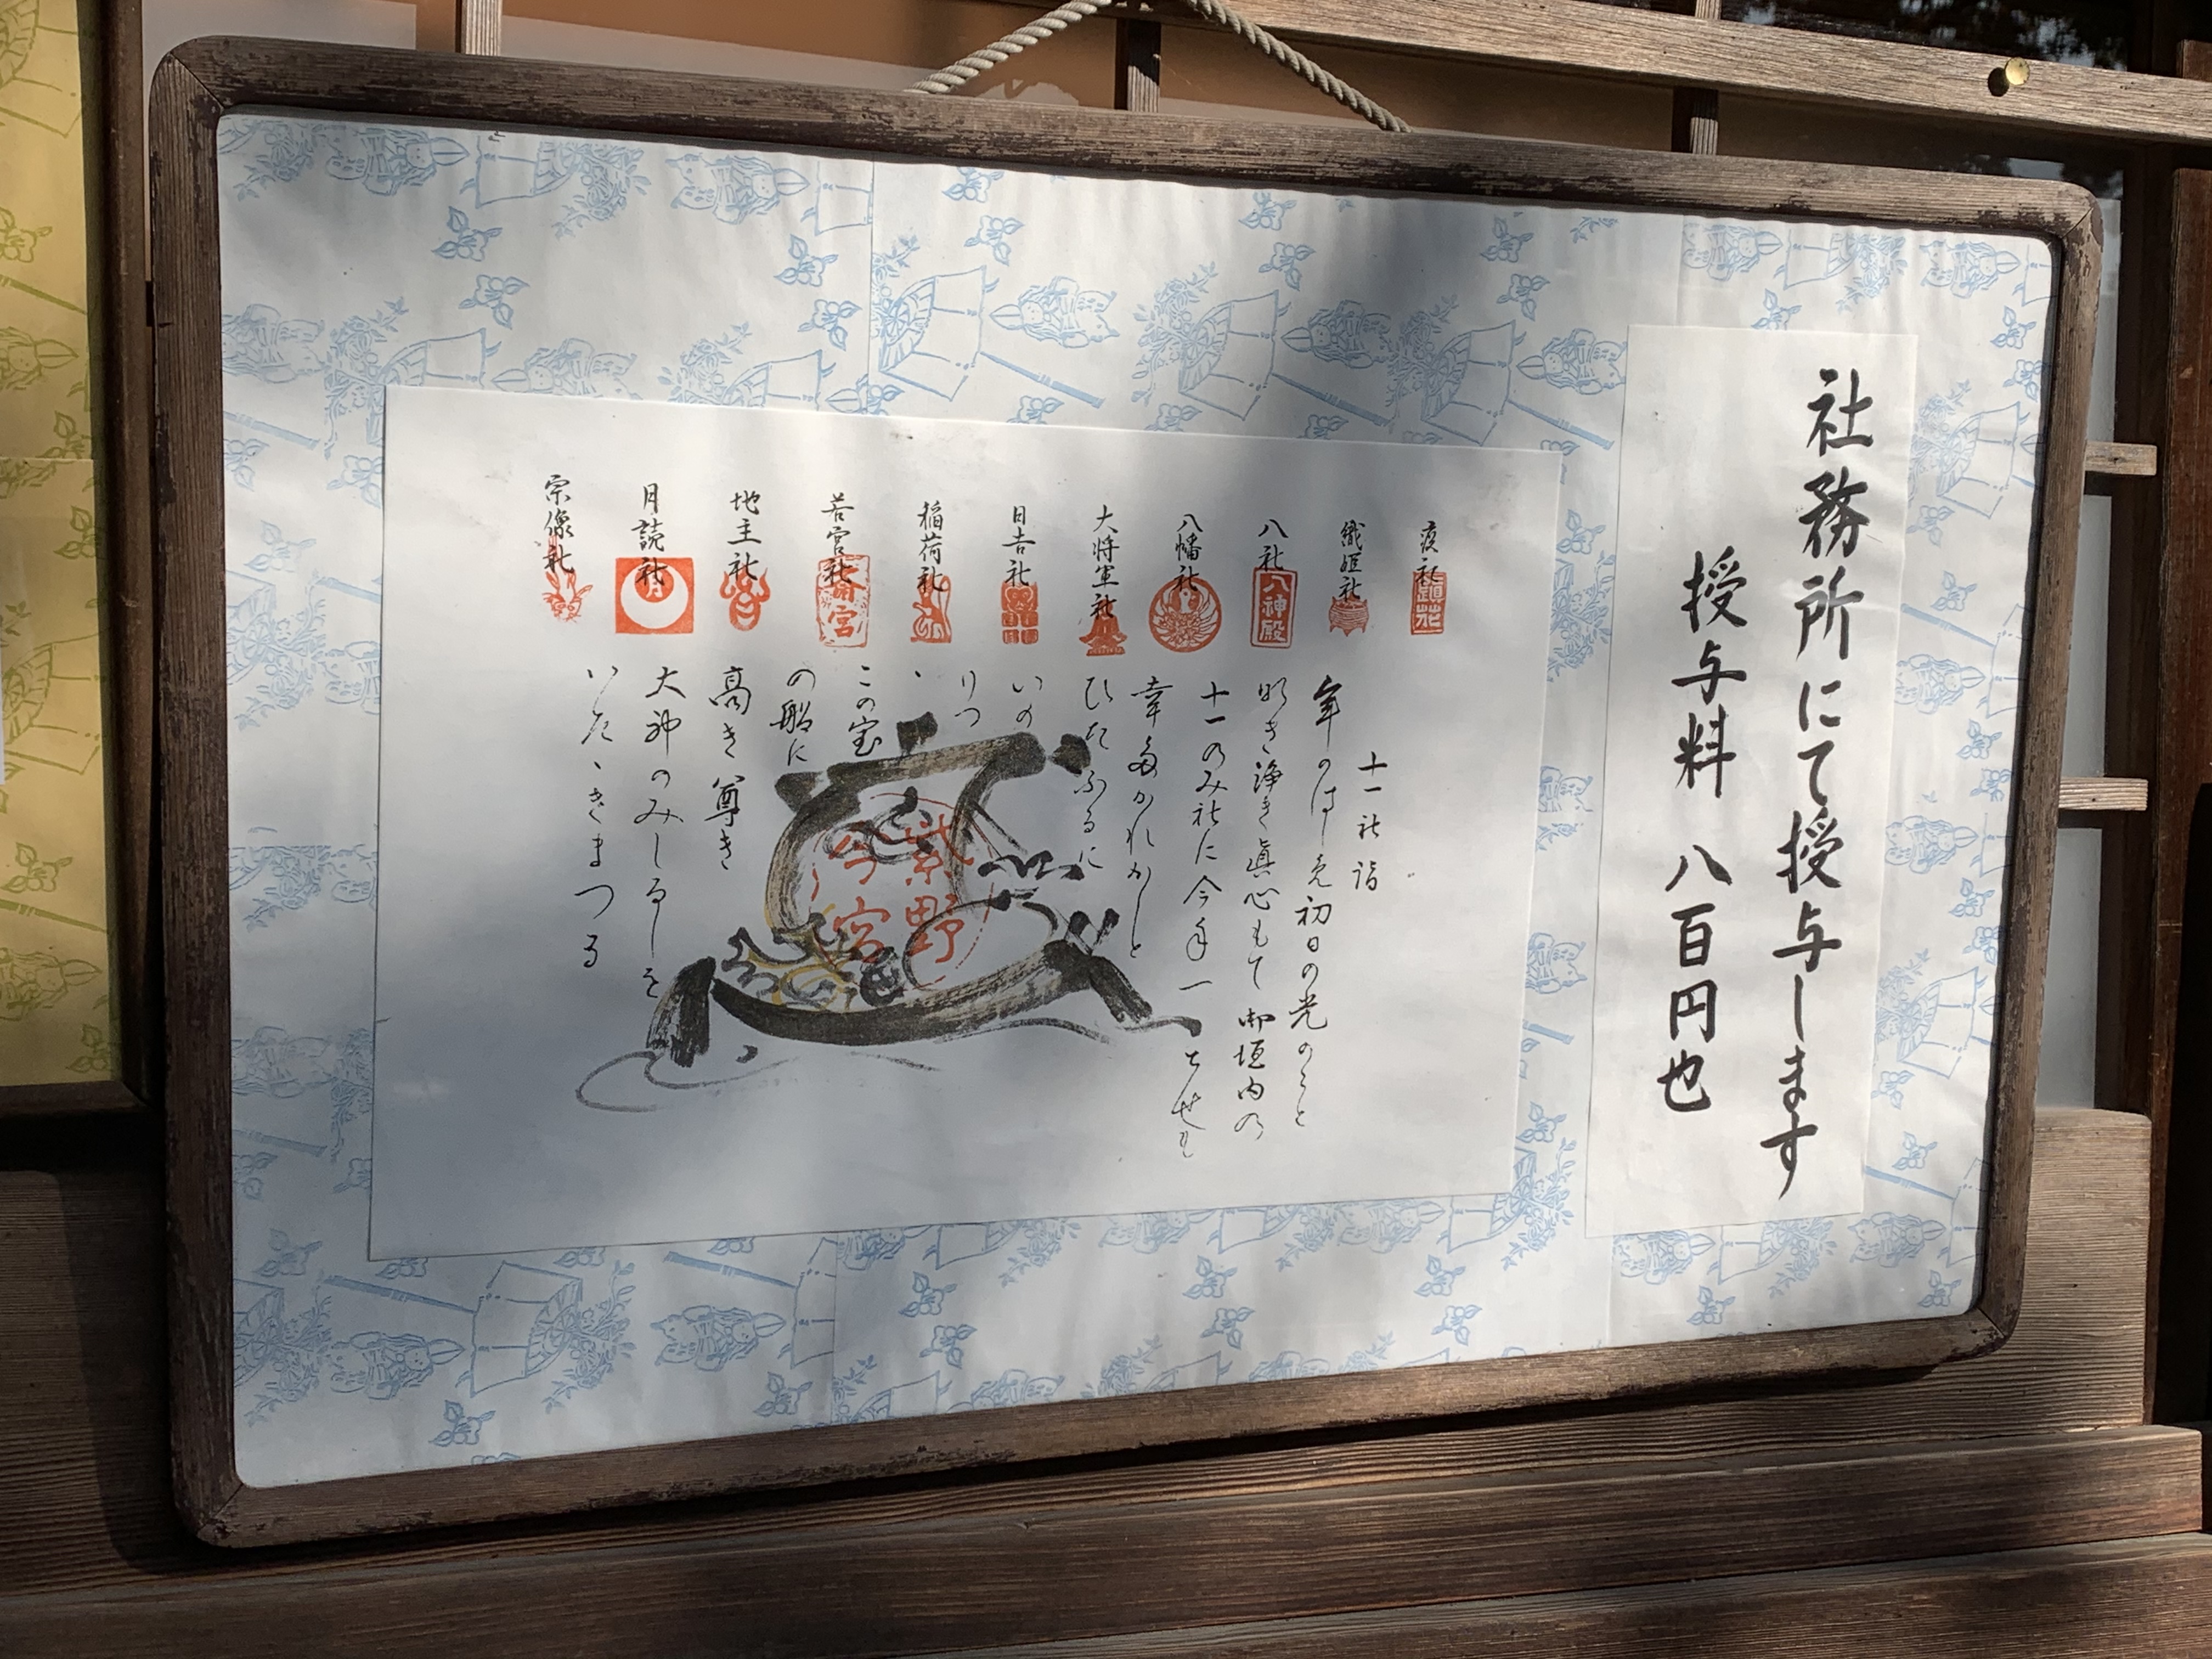 社務所にて授与します
授与料 八百円也
疫社
織姫社
八社
八幡社
大将軍社
日吉社
稲荷社
若宮社
地主社
月読社
宗像社
八神殿
斎宮
十一社詣
年のはじめ初日の光のごと
明き浄き眞心もて御垣内の
十一のみ社に今年一とせも
幸多かれかしと
ひたふるに
いの
りつゝ
この宝
の船に
高き尊き
大神のみしるしを
いたゝきまつる
紫野
今宮